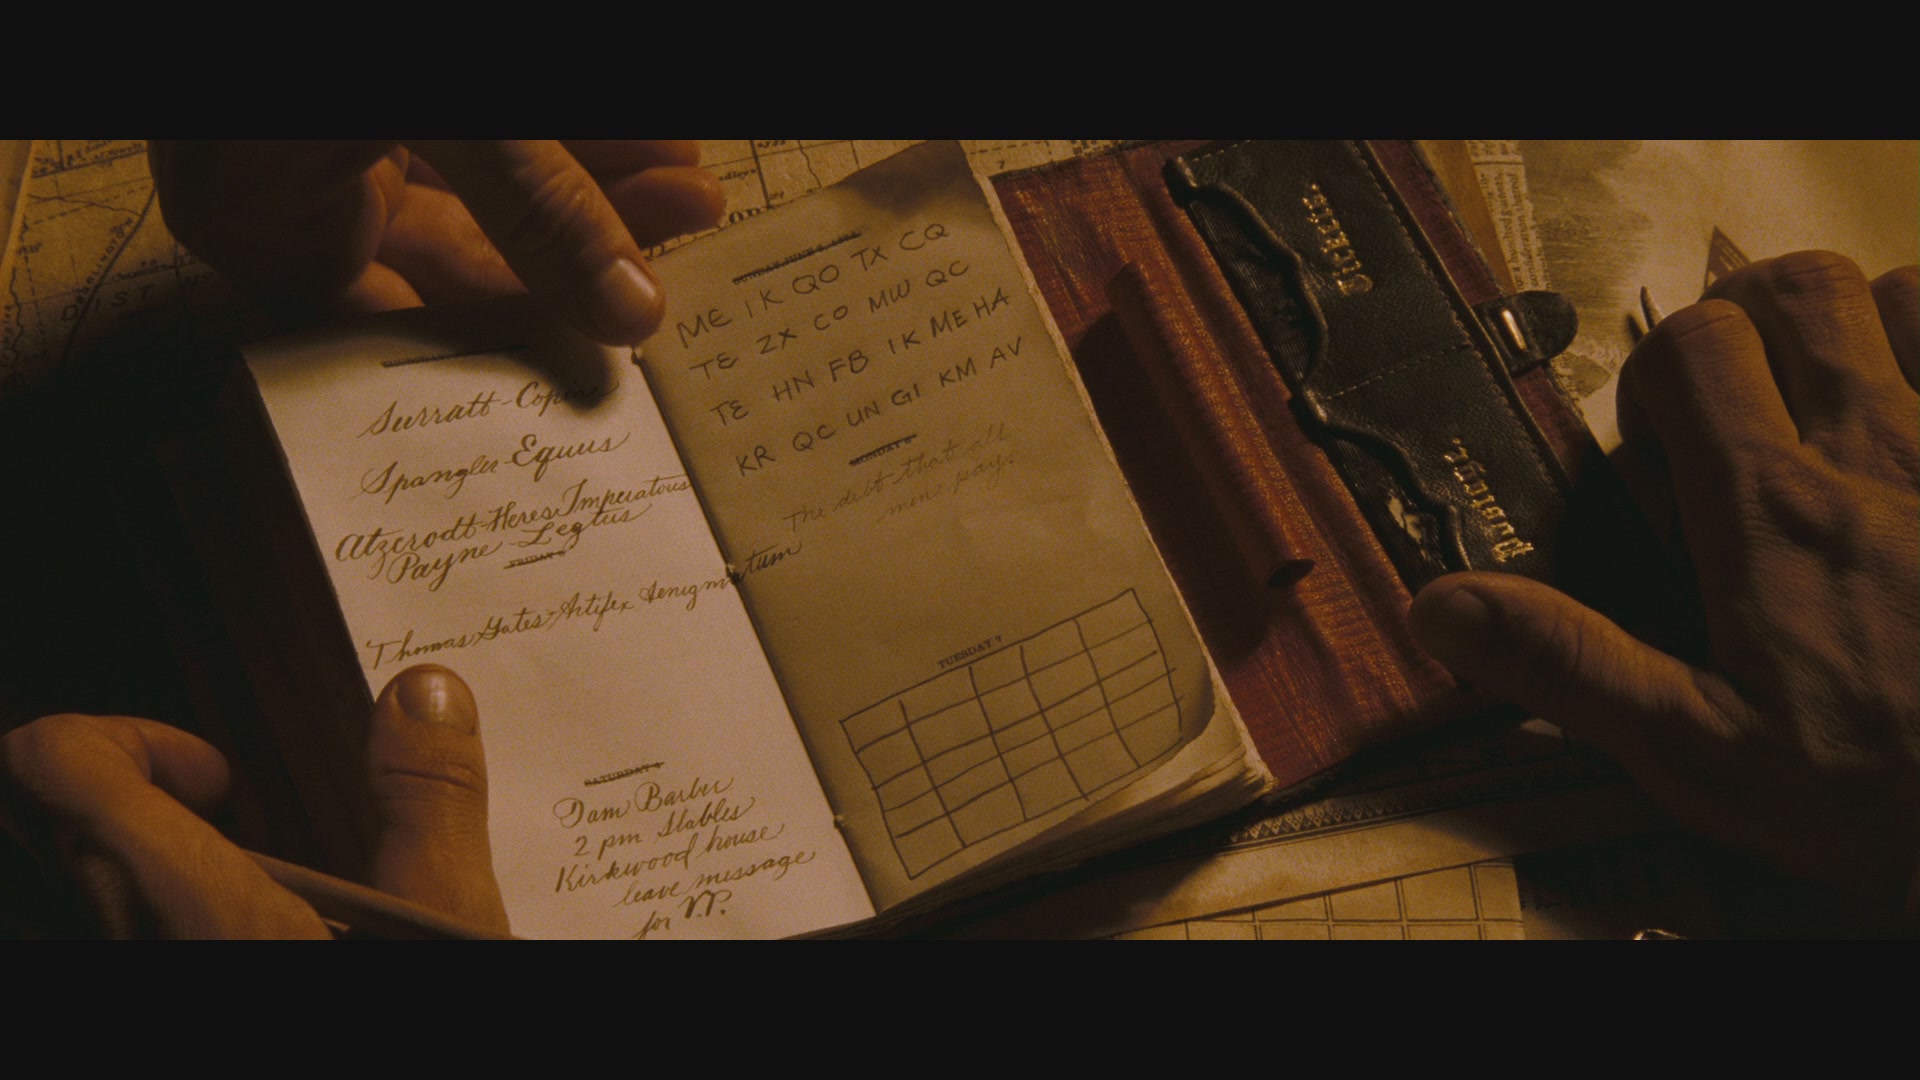 Surratt-Copiae
Spangler-Equus
Atzerodt-Heres Imperatous
Payne-Legtus
FRIDAY
Thomas Gates-Artifex Aenigmatum
SATURDAY 4
Dam Barber
2 pm Stables
Kirkwood house
leave message
for V.P.
ME IK QO TX CQ
TE ZX CO MW QC
TE HN FB IK ME HA
KR QC UN GI KM AV
MONDAY 6
The debt that all
men pay.
TUESDAY 7
Tickets.
Postage.